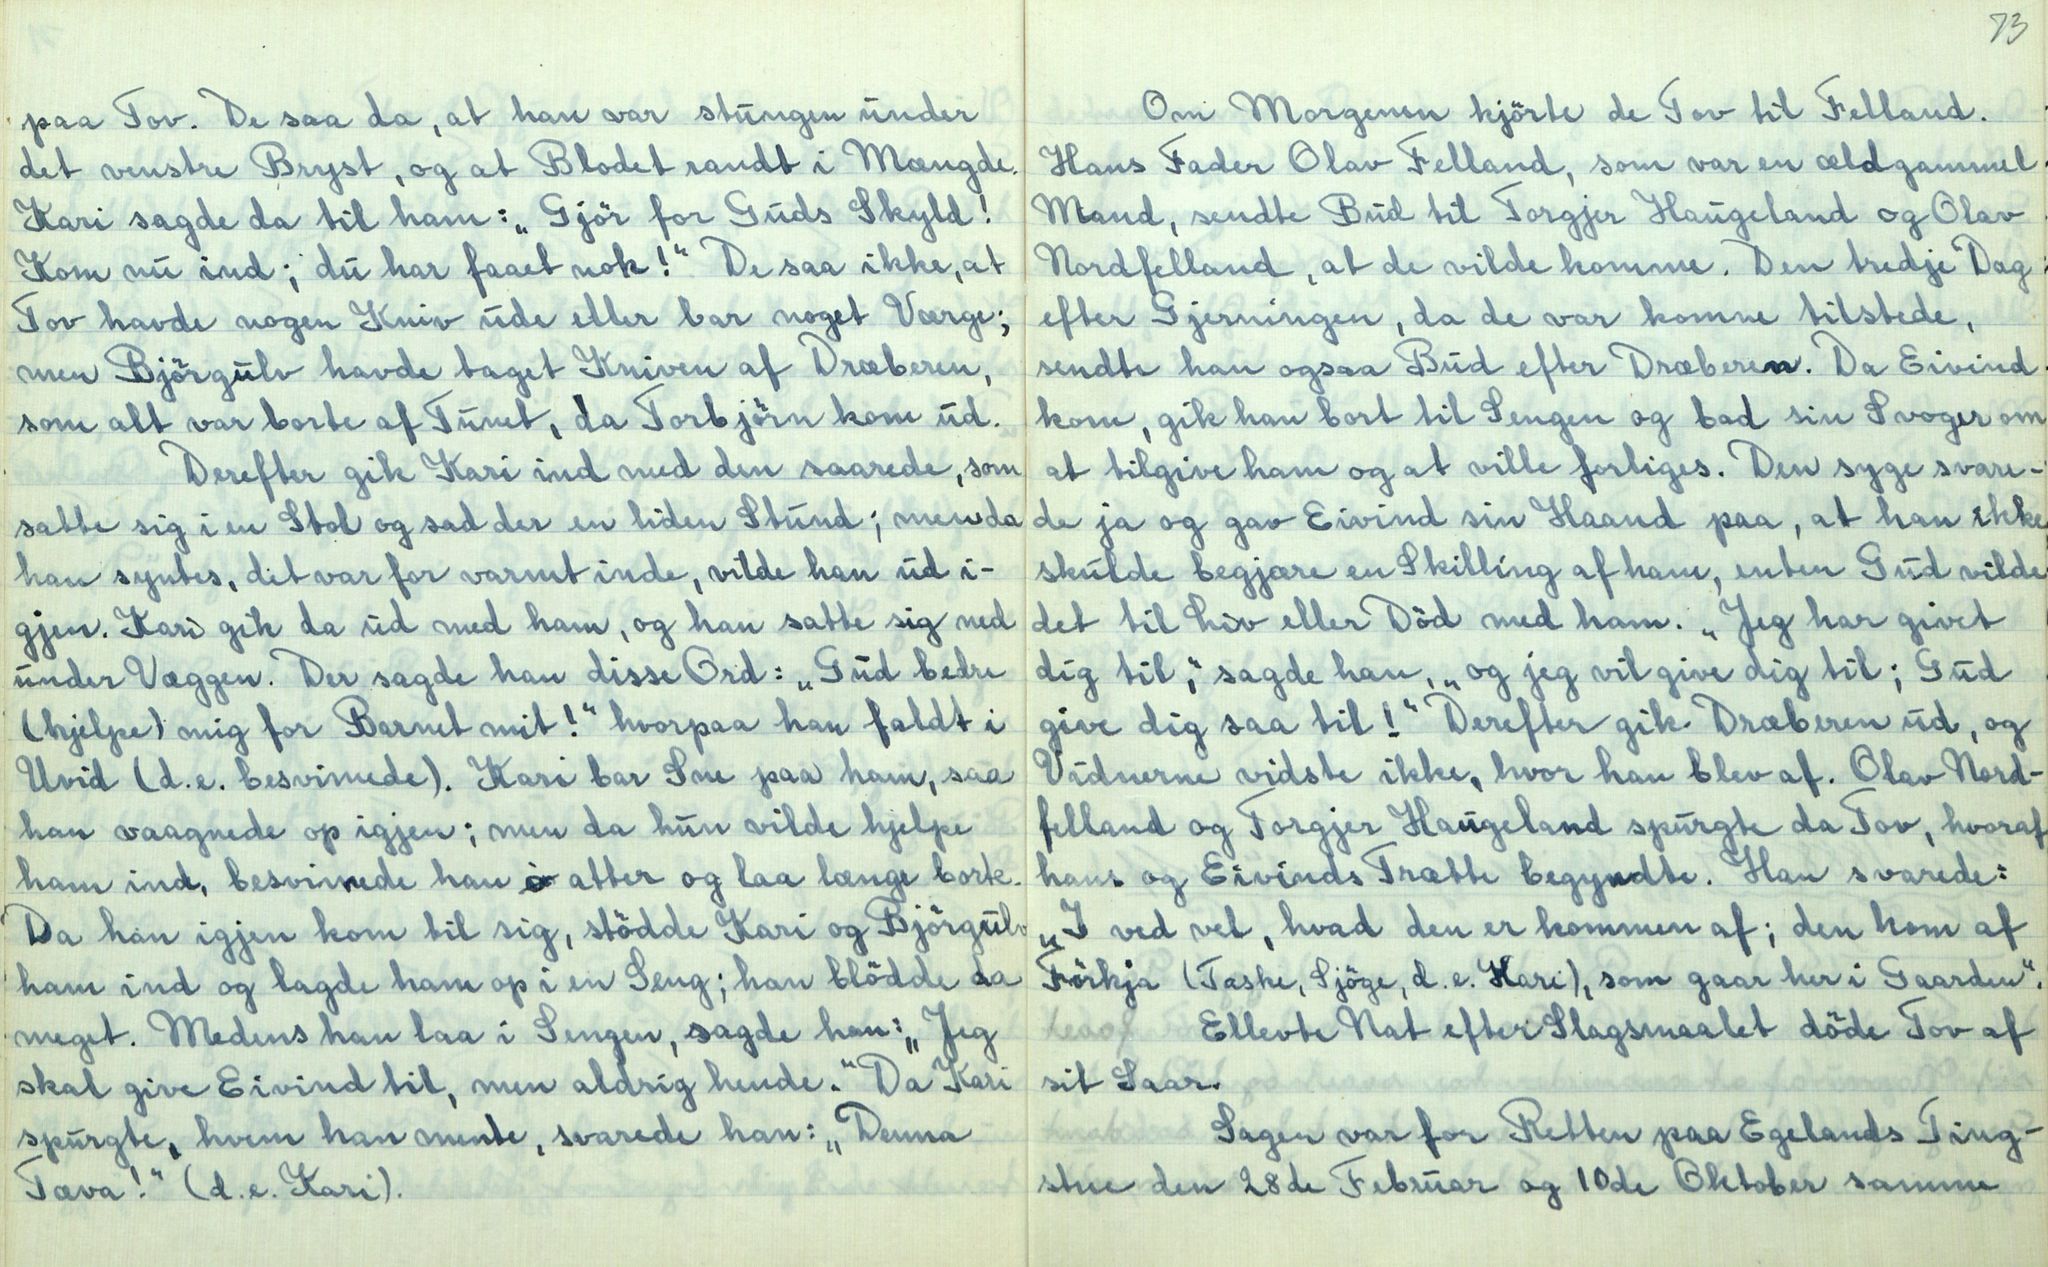 paa Tov. De saa da, at han var stungen under
det venstre Bryst, og at Blodet randt i Mængde.
Kari sagde da til ham: „Gjör for Guds Skyld!
Kom nu ind; du har faaet nok!“ De saa ikke, at
Tov havde nogen Kniv ude eller bar noget Værge;
men Björgulv havde taget Kniven af Dræberen,
som alt var borte af Tunet, da Torbjörn kom ud.
Derefter gik Kari ind med den saarede, som
satte sig i en Stol og sad der en liden Stund; men da
han syntes, det var for varmt inde, vilde han ud i-
gjen. Kari gik da ud med ham, og han satte sig ned
under Væggen. Der sagde han disse Ord: „Gud bedre
(hjelpe) mig for Barnet mit!“ hvorpaa han faldt i
Uvid (d.e. besvimede). Kari bar Sne paa ham, saa
han vaagnede op igjen; men da hun vilde hjelpe
ham ind, besvimede han atter og laa længe borte.
Da han igjen kom til sig, stödde Kari og Björgulv
ham ind og lagde ham op i en Seng; han blödde da
meget. Medens han laa i Sengen, sagde han: „Jeg
skal give Eivind til, men aldrig hende.“ Da Kari
spurgte, hvem han mente, svarede han: „Denna
Tæva!“ (d.e. Kari).
73
Om Morgenen kjörte de Tov til Felland.
Hans Fader Olav Felland, som var en ældgammel
Mand, sendte Bud til Torgjer Haugeland og Olav
Nordfelland, at de vilde komme. Den tredje Dag
efter Gjerningen, da de var komne tilstede,
sendte han ogsaa Bud efter Dræberen. Da Eivind
kom, gik han bort til Sengen og bad sin Svoger om
at tilgive ham og at ville forliges. Den syge svare-
de ja og gav Eivind sin Haand paa, at han ikke
skulde begjære en Skilling af ham, enten Gud vilde
det til Liv eller Död med ham. „Jeg har givet
dig til,“ sagde han, „og jeg vil give dig til; Gud
give dig saa til!“ Derefter gik Dræberen ud, og
Vidnerne vidste ikke, hvor han blev af. Olav Nord-
felland og Torgjer Haugeland spurgte da Tov, hvoraf
hans og Eivinds Trætte begyndte. Han svarede:
„I ved vel, hvad den er kommen af; den kom af
Förkja (Taske, Sjöge, d.e. Kari), som gaar her i Gaarden“.
Ellevte Nat efter Slagsmaalet döde Tov af
sit Saar.
Sagen var for Retten paa Egelands Ting-
stue den 28de Februar og 10de Oktober samme